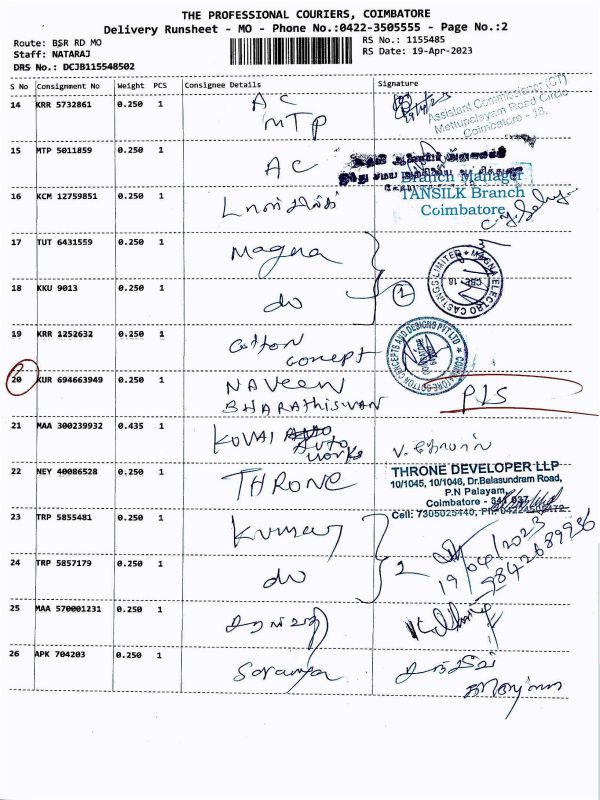 THE PROFESSIONAL COURIERS, COIMBATORE
Delivery Runsheet - MO - Phone No.:0422-3505555 - Page No.:2
Route: BSR RD MO
RS No.: 1155485
Staff: NATARAJ
RS Date: 19-Apr-2023
DRS No.: DCJB115548502
S No Consignment No Weight PCS Consignee Details Signature
14 KRR 5732861 0.250 1 AC
MTP
19/4/23
Assistant Commissioner (CT)
Mettupalayam Road Circle
Coimbatore - 18.
15 MTP 5011859 0.250 1 AC
16 KCM 12759851 0.250 1
Branch Manager
TANSILK Branch
Coimbatore
17 TUT 6431559 0.250 1 Magna
18 KKU 9013 0.250 1 do
1
MAGNA ELECTRO CASTINGS LIMITED
19 KRR 1252632 0.250 1 Cotton
Concept
COTTON CONCEPTS AND DESIGNS PVT LTD
20 KUR 694663949 0.250 1 NAVEEN
BHARATHISWAN
P/S
21 MAA 300239932 0.435 1 KOVAI Auto
Works
22 NEY 40086528 0.250 1 THRONE
THRONE DEVELOPER LLP
10/1045, 10/1046, Dr.Balasundram Road,
P.N Palayam,
Coimbatore - 641 037
Cell: 7305025440,
23 TRP 5855481 0.250 1 Kumar
24 TRP 5857179 0.250 1 do
2
19/04/2023
9842689936
25 MAA 570001231 0.250 1
26 APK 704203 0.250 1